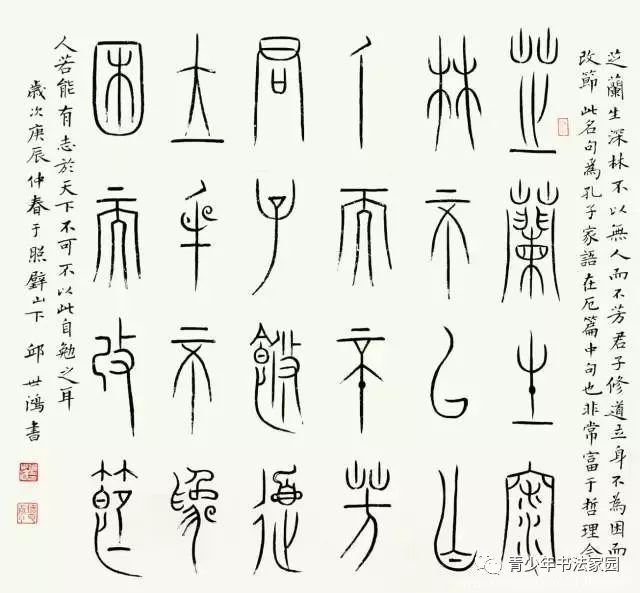 芝蘭生深林不以無人而不芳君子修道立身不為困而
改節 此名句為孔子家語在厄篇中句也非常富于哲理今
芝蘭生深
林不以
人而不芳
君子
立不為
困而改節
人若能有志於天下不可不以此自勉之耳
歲次庚辰仲春于照壁山下 邱世鴻書
青少年书法家园